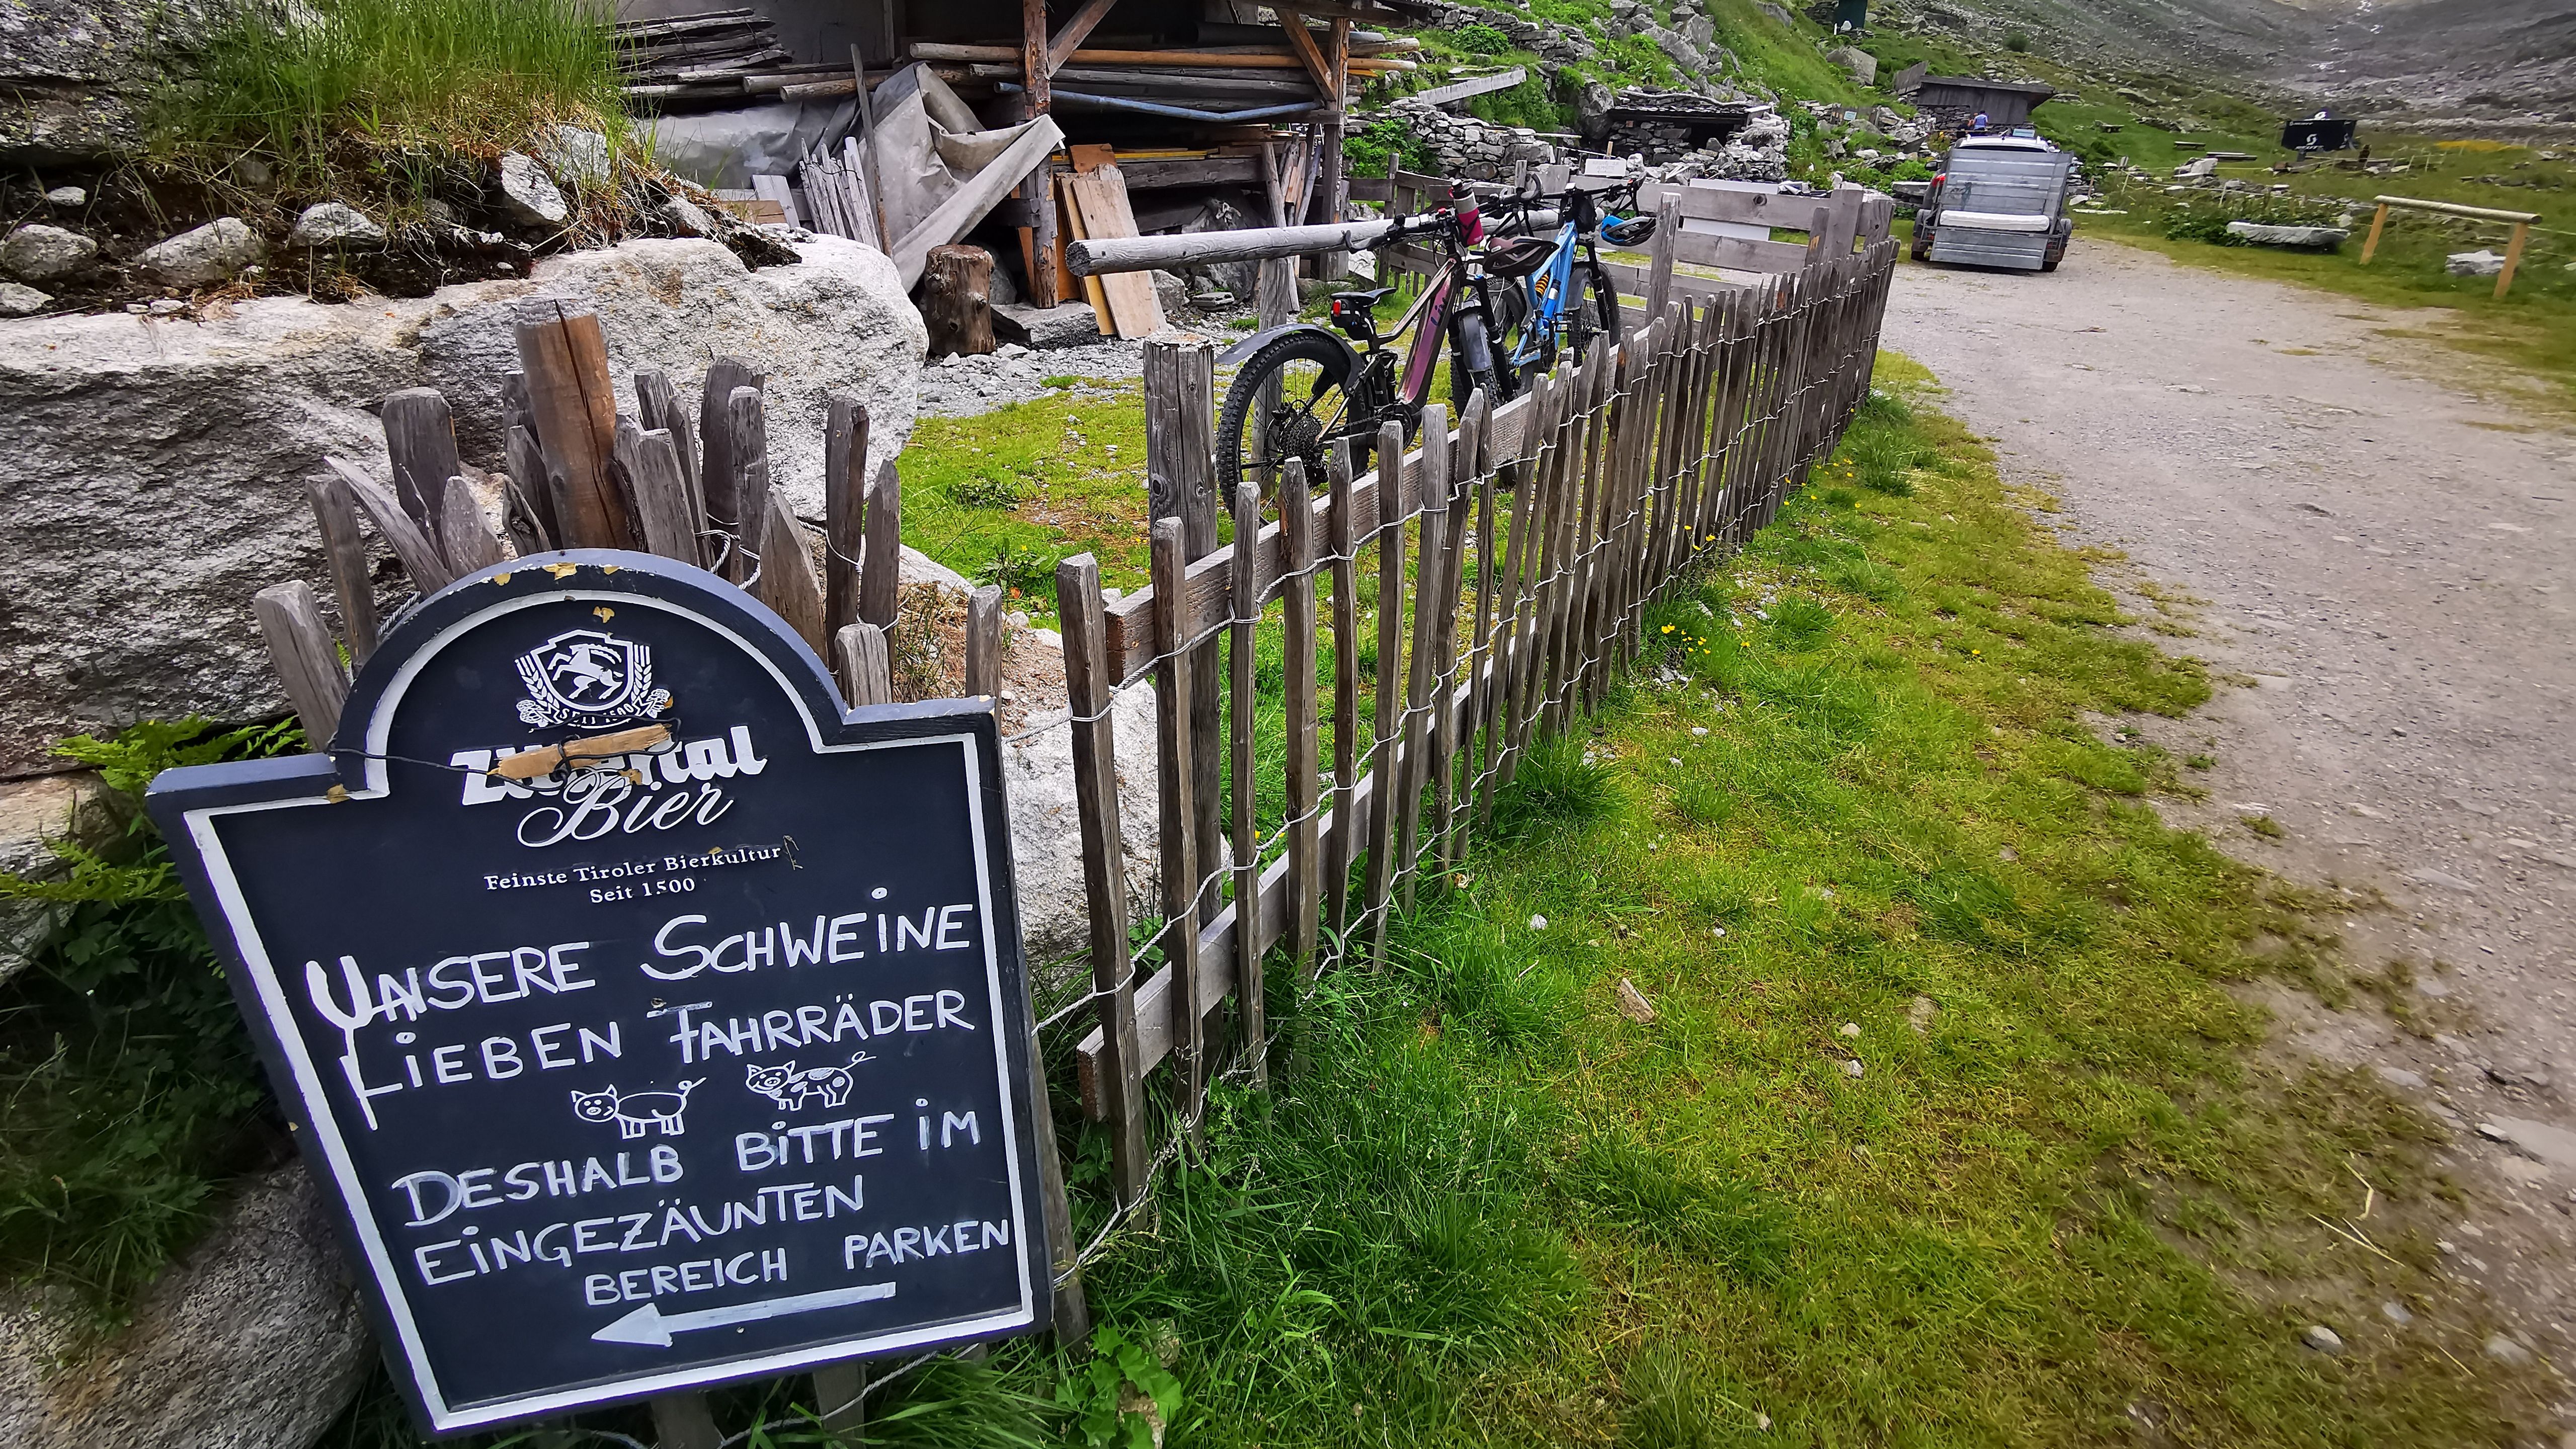 Bier
Feinste Tiroler Bierkultur
Seit 1500
UNSERE SCHWEINE
LIEBEN FAHRRÄDER
DESHALB BITTE IM
EINGEZÄUNTEN
BEREICH PARKEN